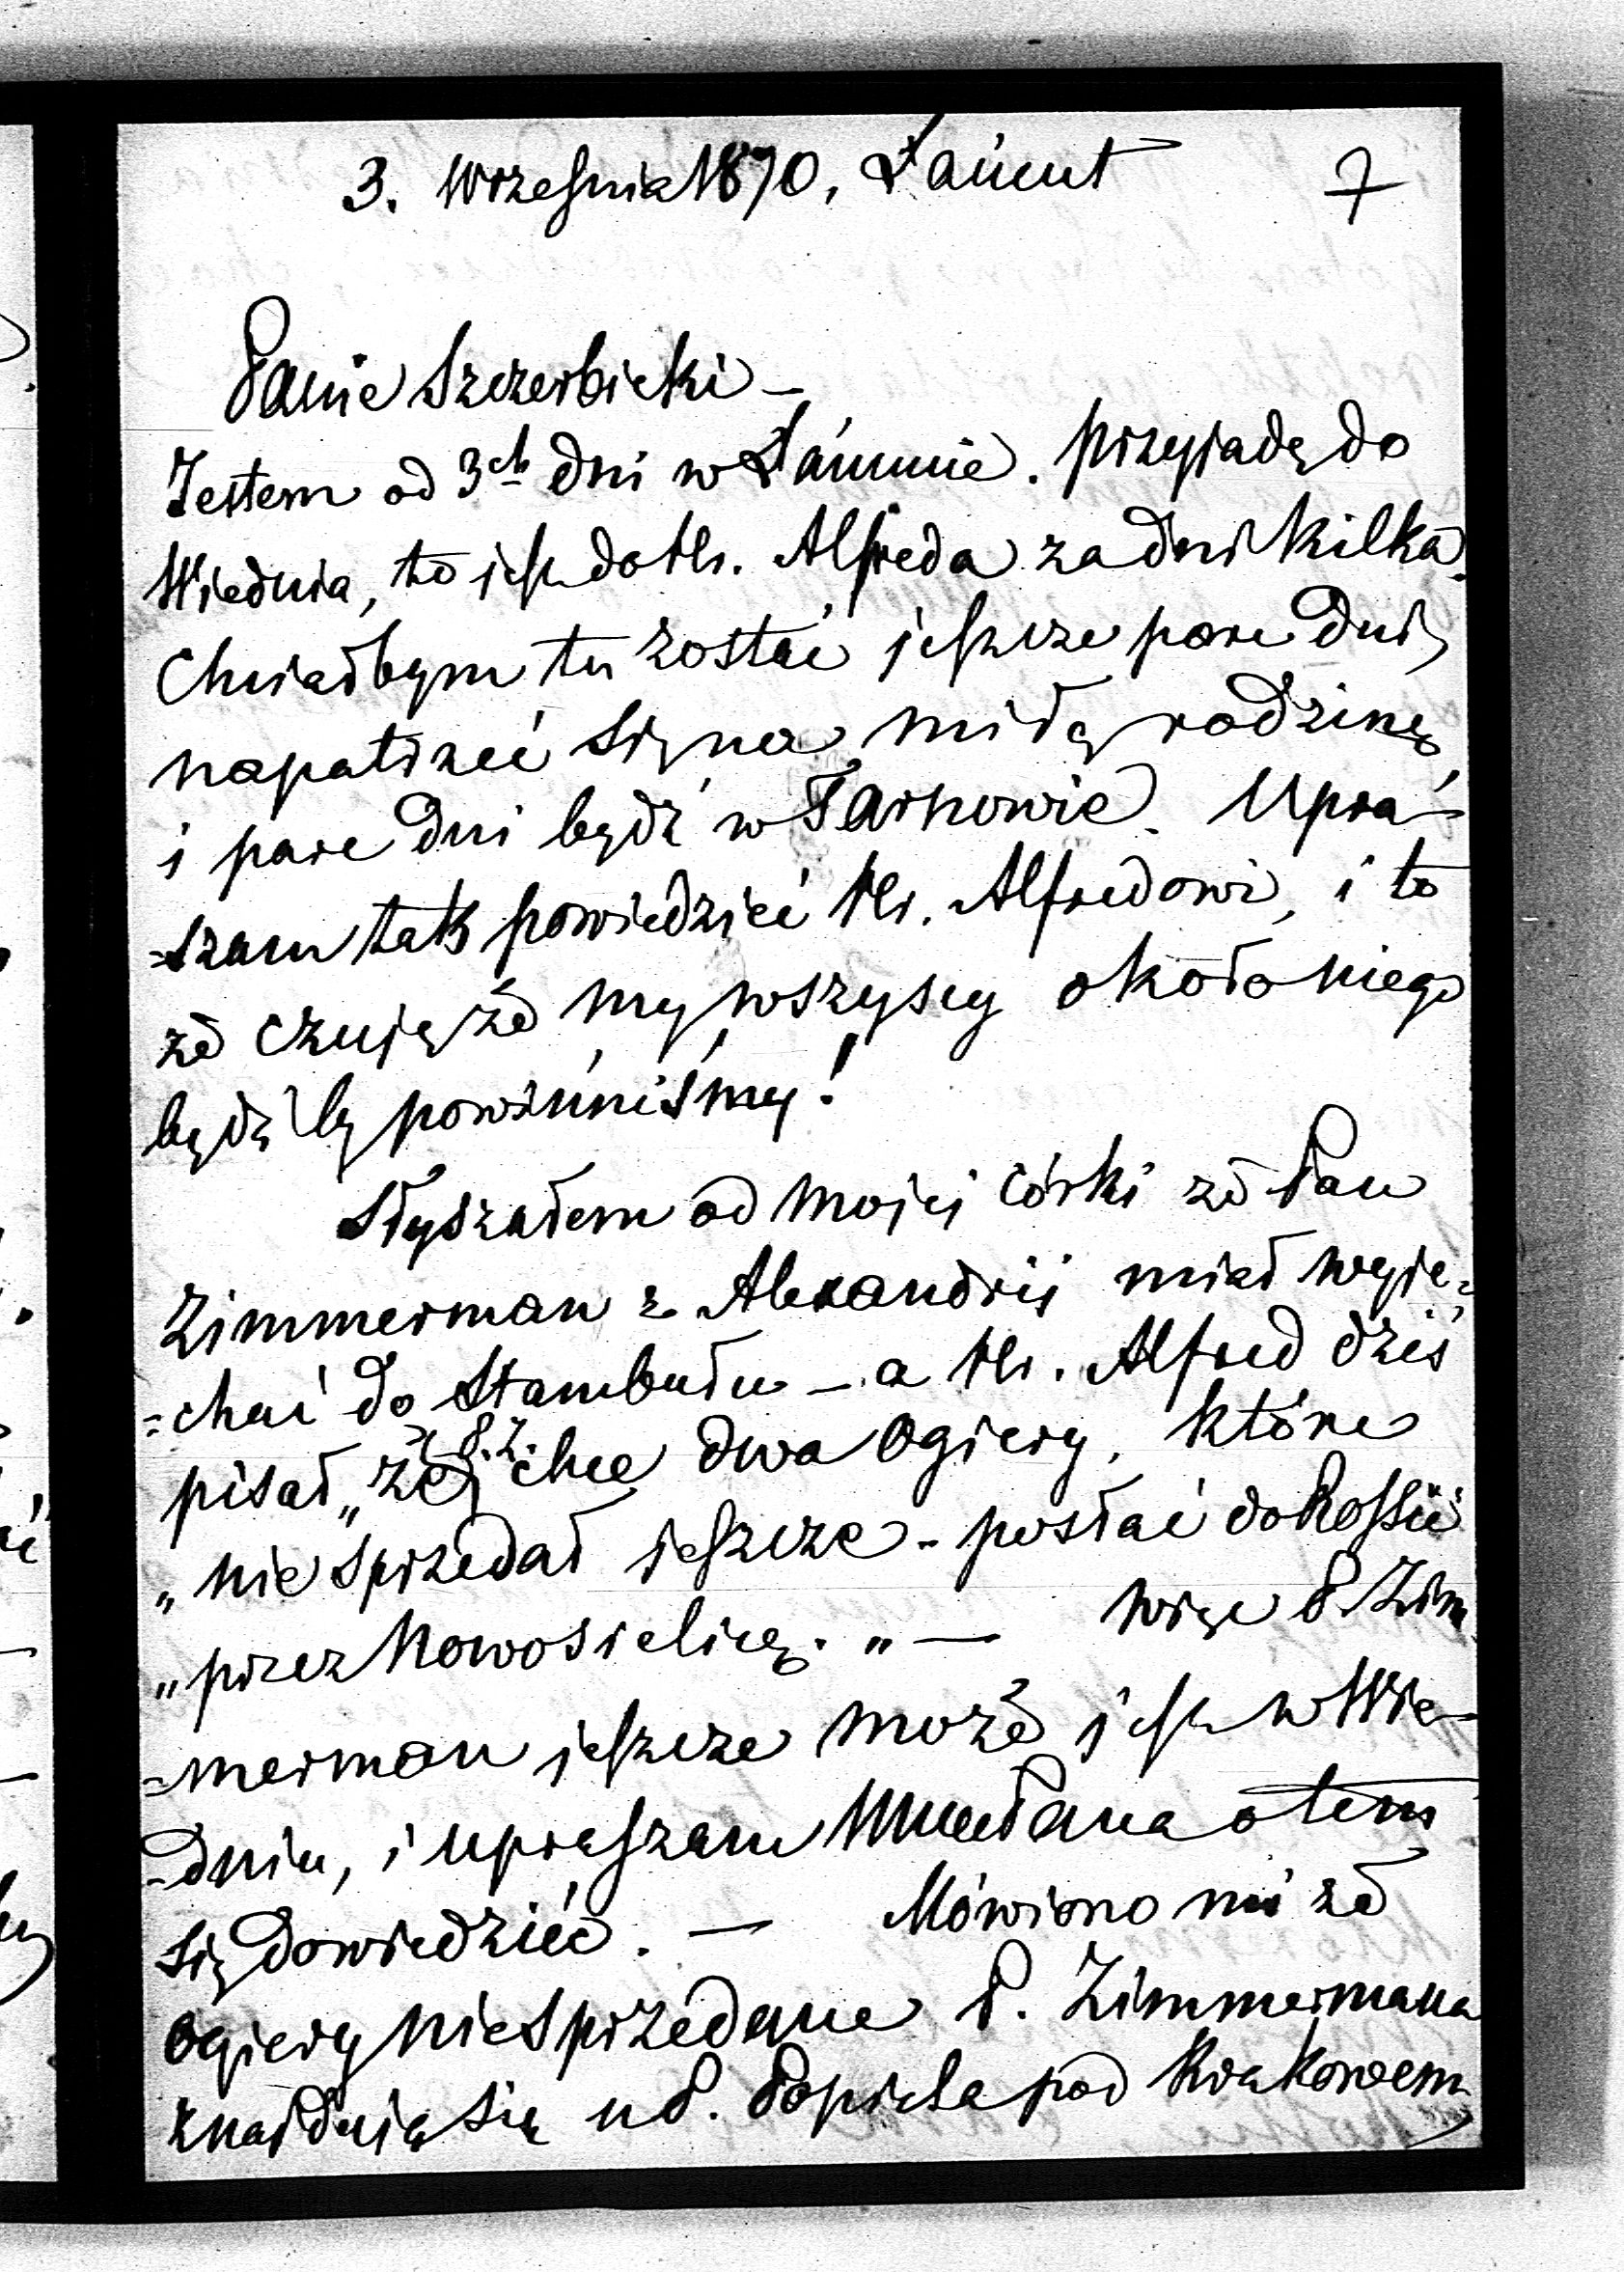 3. Września 1870, Łańcut 7
Panie Szczerbicki –
Jestem od 3ch dni w Łańcucie. przyjadę do
Wiednia, to jest do Hr. Alfreda za dni kilka.
Chciałbym tu zostać jeszcze pare dni,
napatrzeć się na miłą rodzinę
i pare dni bydź w Tarnowie. Upra-
=szam tak powiedzieć Hr. Alfredowi, i to
że czuję że my wszyscy około niego
bydź by powinniśmy!
Słyszałem od mojej córki że Pan
Zimmerman z Alexandrij miał wyje=
=chać do Stambułu – a Hr. Alfred dziś
pisał „że P.Z. chce dwa Ogiery, które
„nie sprzedał jeszcze – posłać do Rossii
„przez Nowosielicę. „ — więc P. Zim
=merman jeszcze może jest w Wie-
=dniu, i upraszam Pana o tem
się dowiedzieć. — Mówiono mi że
Ogiery niesprzedane P. Zimmermana
znajdują się u P. Popiela pod Krakowem,